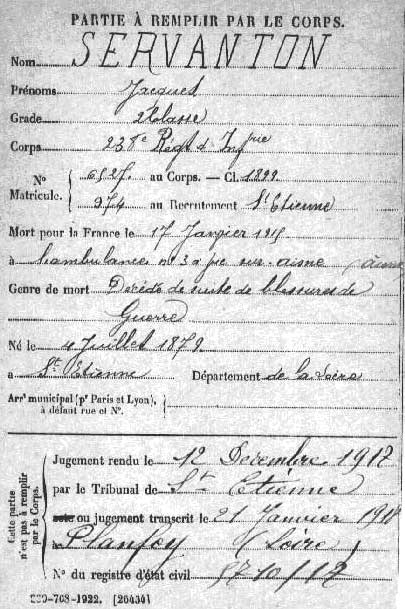 PARTIE À REMPLIR PAR LE CORPS.
Nom SERVANTON
Prénoms Jacques
Grade 2e Classe
Corps 238e Regt d'Infrie
No Matricule. { 6527. au Corps. — Cl. 1899
974 au Recrutement St Etienne
Mort pour la France le 17 Janvier 1915
à l'ambulance no 3 Vic sur aisne (aisne
Genre de mort Décédé de suite de blessures de
Guerre
Né le 4 Juillet 1879
à St Etienne Département de la Loire
Arrt municipal (pr Paris et Lyon),
à défaut rue et No.
Cette partie n'est pas à remplir par le Corps.
Jugement rendu le 12 Decembre 1917
par le Tribunal de St Etienne
acte ou jugement transcrit le 21 Janvier 1918
à Planfoy (Loire)
No du registre d'état civil
-708-1922. [26434]